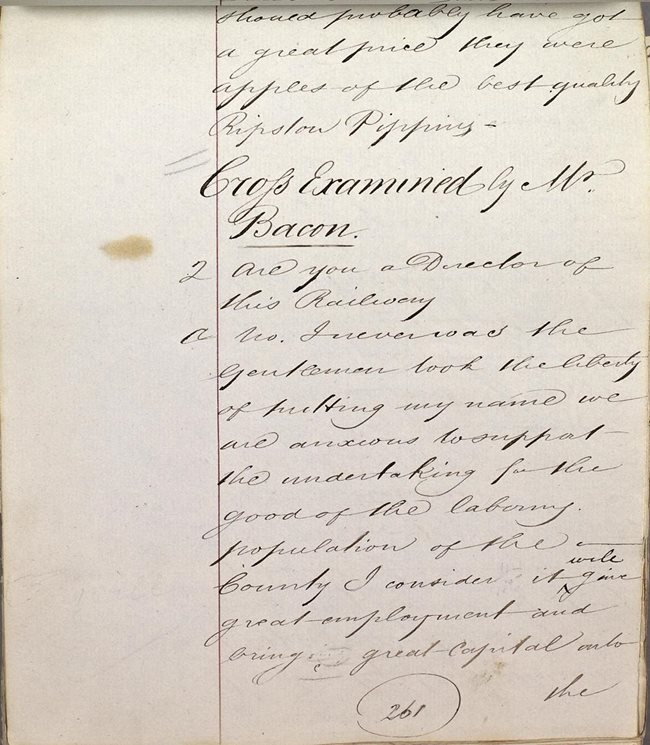 should probably have got
a great price they were
apples of the best quality
Ripston Pippins -
Cross Examined by Mr.
Bacon.
Q Are you a Director of
this Railway
A No. I never was the
Gentlemen took the liberty
of putting my name we
are anxious to support
the undertaking for the
good of the laboring
population of the
will
County I consider it give
great employment and
bring great Capital into
the
261